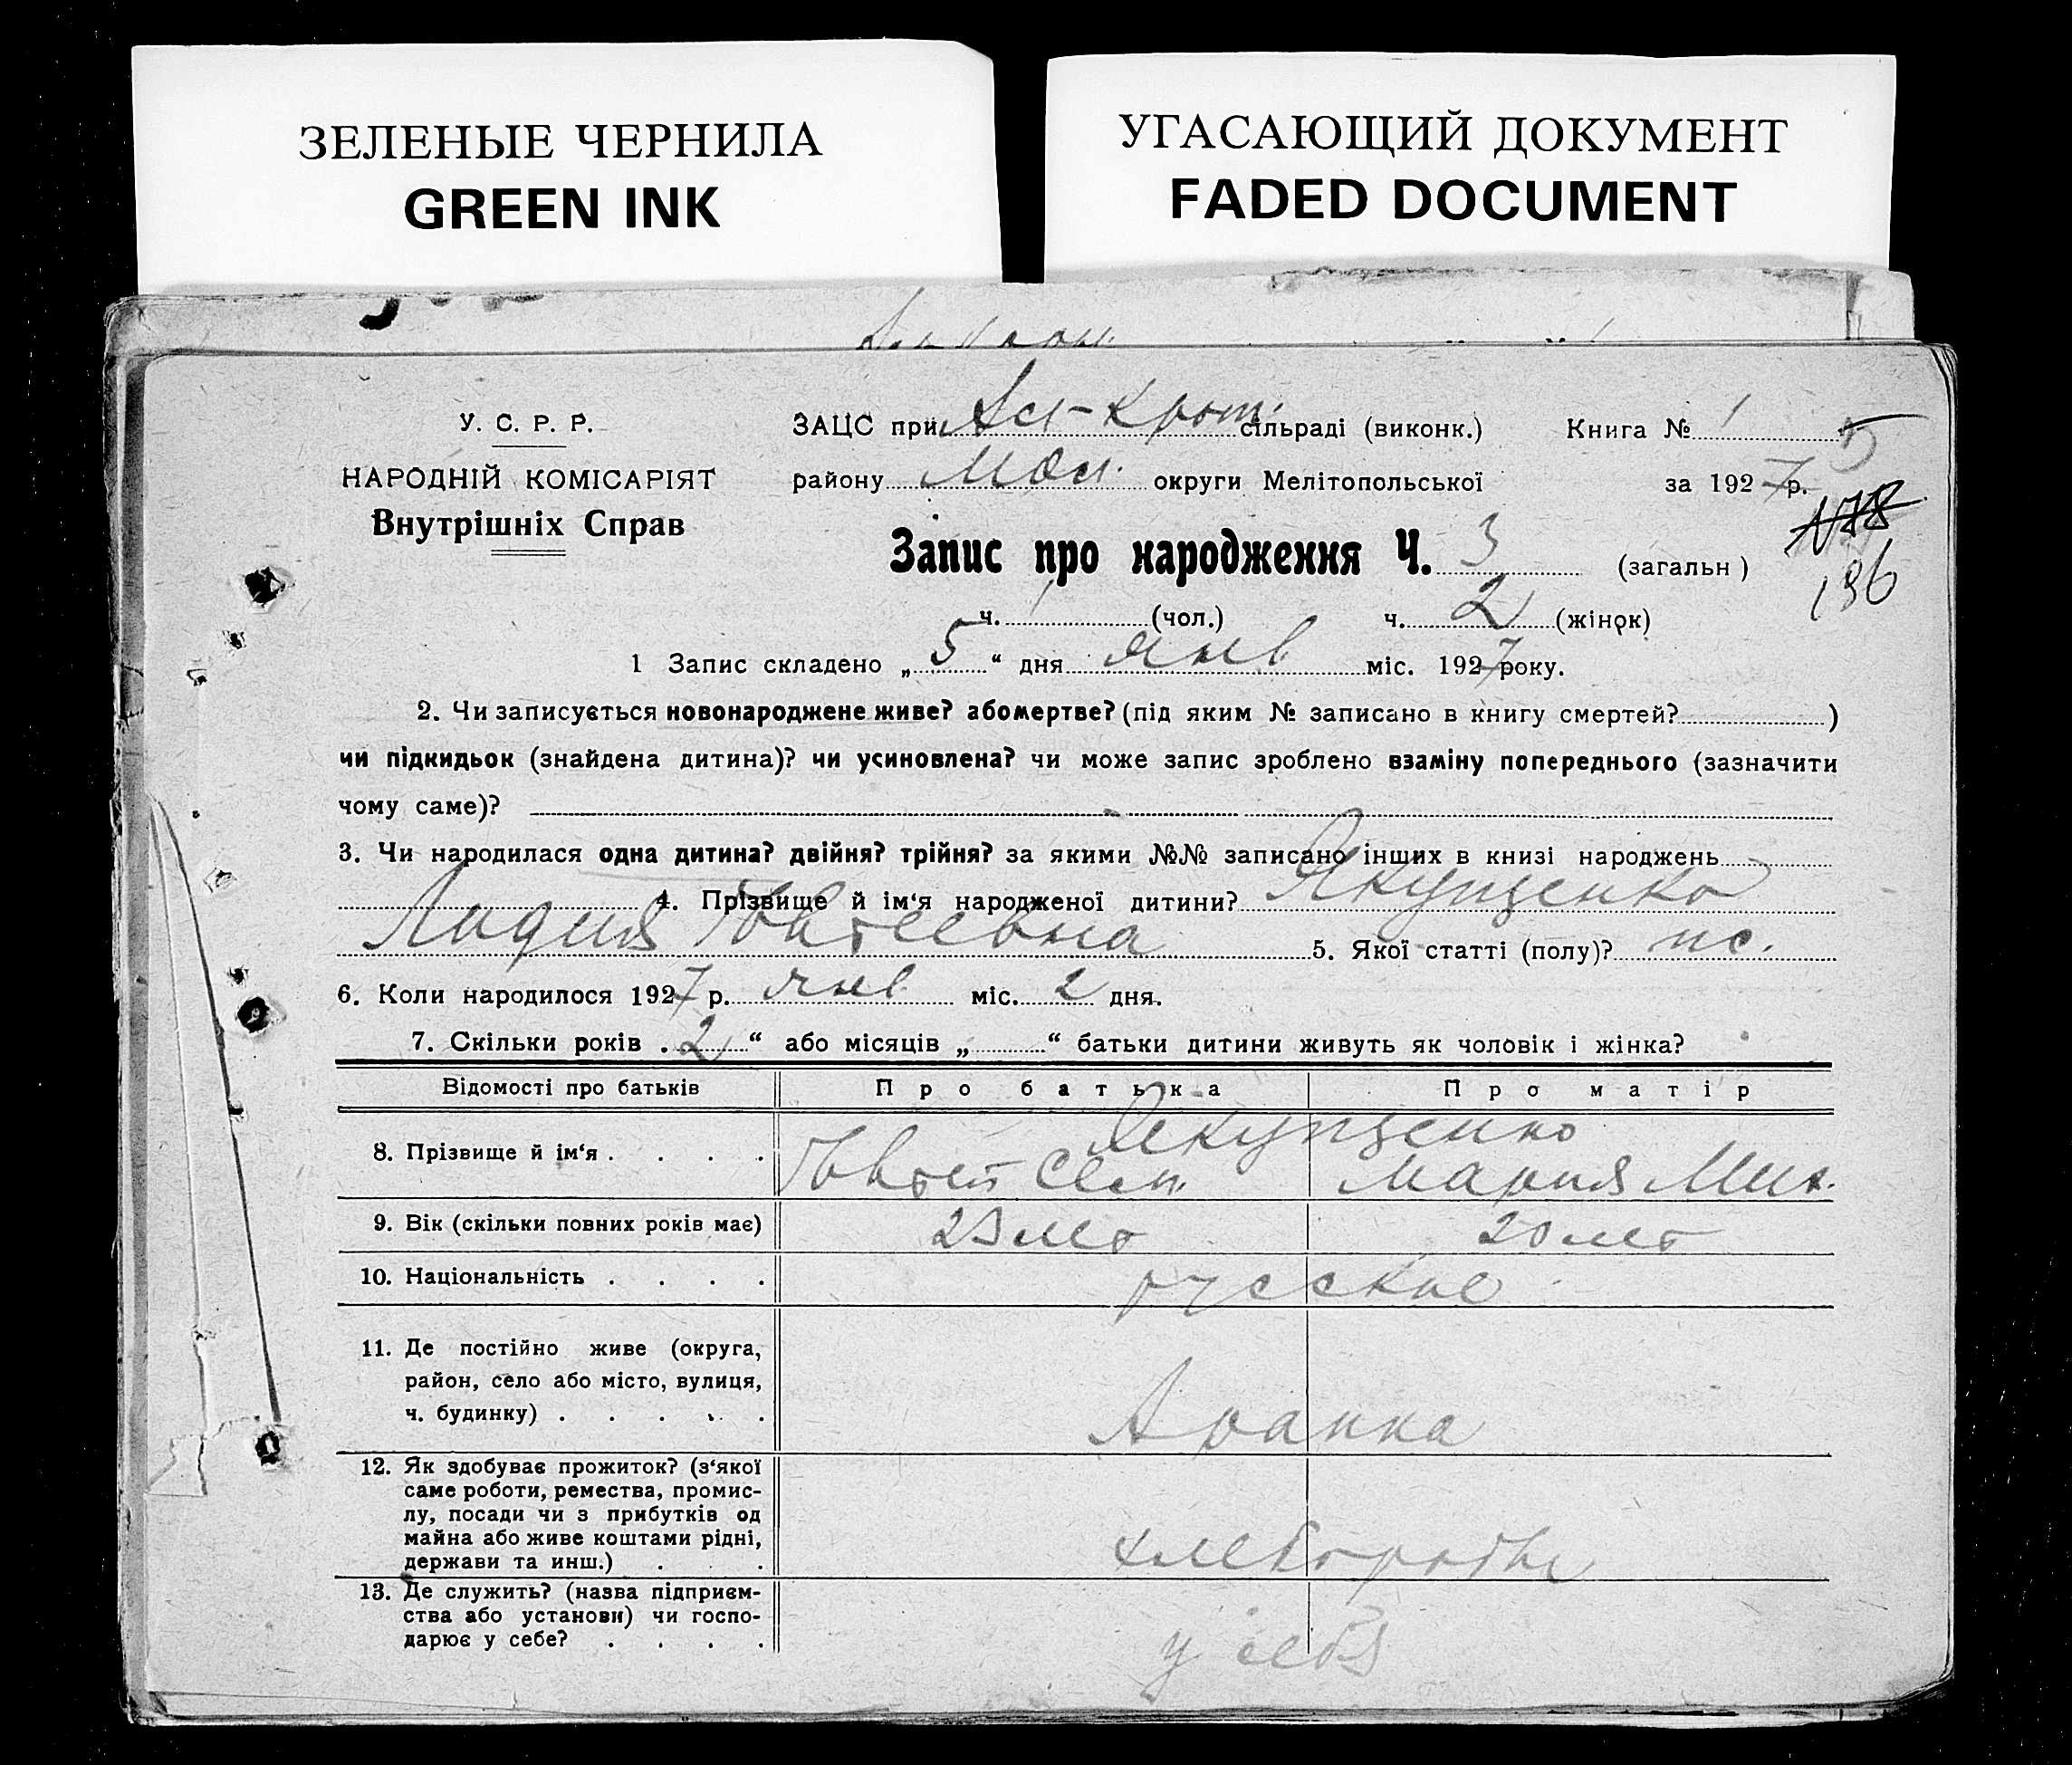 ЗЕЛЕНЫЕ ЧЕРНИЛА
GREEN INK
УГАСАЮЩИЙ ДОКУМЕНТ
FADED DOCUMENT
У. С. Р. Р.
НАРОДНІЙ КОМІСАРІЯТ
Внутрішніх Справ
ЗАЦС при сільраді (виконк.) Книга № 1 5
району округи Мелітопольської за 1927р.
Запис про народження Ч. 3 (загальн)
196
ч. 1 (чол.) ч. 2 (жінок)
1 Запис складено „5“ дня янв міс. 1927 року.
2. Чи записується новонароджене живе? або мертве? (під яким № записано в книгу смертей? )
чи підкидьок (знайдена дитина)? чи усиновлена? чи може запис зроблено взаміну попереднього (зазначити
чому саме)?
3. Чи народилася одна дитина? двійня? трійня? за якими №№ записано інших в книзі народжень
4. Прізвище й ім‘я народженої дитини? Якущенко
Лидия 5. Якої статті (полу)?
6. Коли народилося 1927 р. янв міс. 2 дня.
7. Скільки років . 2 “ або місяців „ “ батьки дитини живуть як чоловік і жінка?
Відомості про батьків Про батька Про матір
8. Прізвище й ім‘я . . . . Якущенко
Мария Мих.
9. Вік (скільки повних років має) 23 лет 20 лет
10. Національність . . . . русские
11. Де постійно живе (округа,
район, село або місто, вулиця,
ч. будинку) . . . . .
12. Як здобуває прожиток? (з‘якої
саме роботи, ремества, промис-
лу, посади чи з прибутків од
майна або живе коштами рідні,
держави та инш.) . . .
хлеборобы
13. Де служить? (назва підприєм-
ства або установи) чи госпо-
дарює у себе? . . . .
у себя